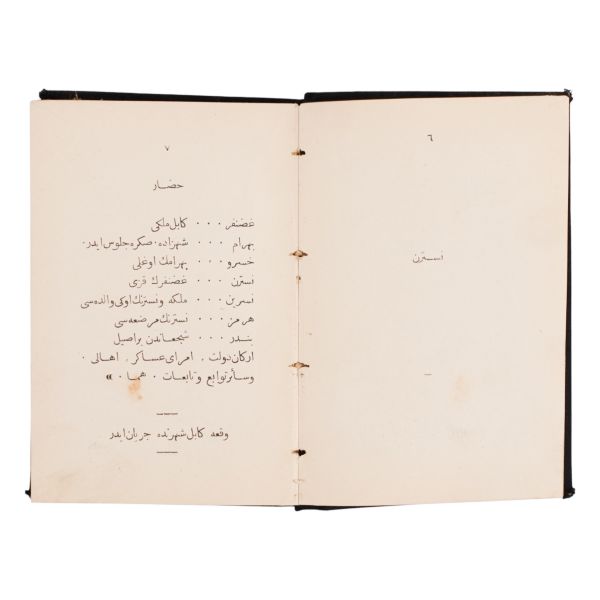 ٦
نسترن
٧
حضار
غضنفر ··· کابل ملکی
بهرام ··· شهزاده، صکره جلوس ایدر.
خسرو ··· بهرامك اوغلی
نسترن ··· غضنفرك قزی
نسرین ··· ملکه و نسترنك اوکی والده‌سی
هرمز ··· نسترنك مرضعه‌سی
بندر ··· شجعاندن بر اصیل
ارکان دولت . امرای عساکر . اهالی .
وسائر توابع و تابعات . هما . »
وقعه کابل شهرنده جریان ایدر